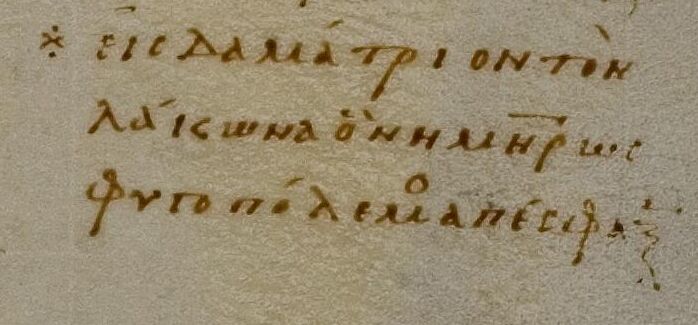 ※ εἰς δαμάτριον τὸν
λάκωνα ὃν ἡ μῆρ ὡς
φυγοπόλεμο ἀπέσφα